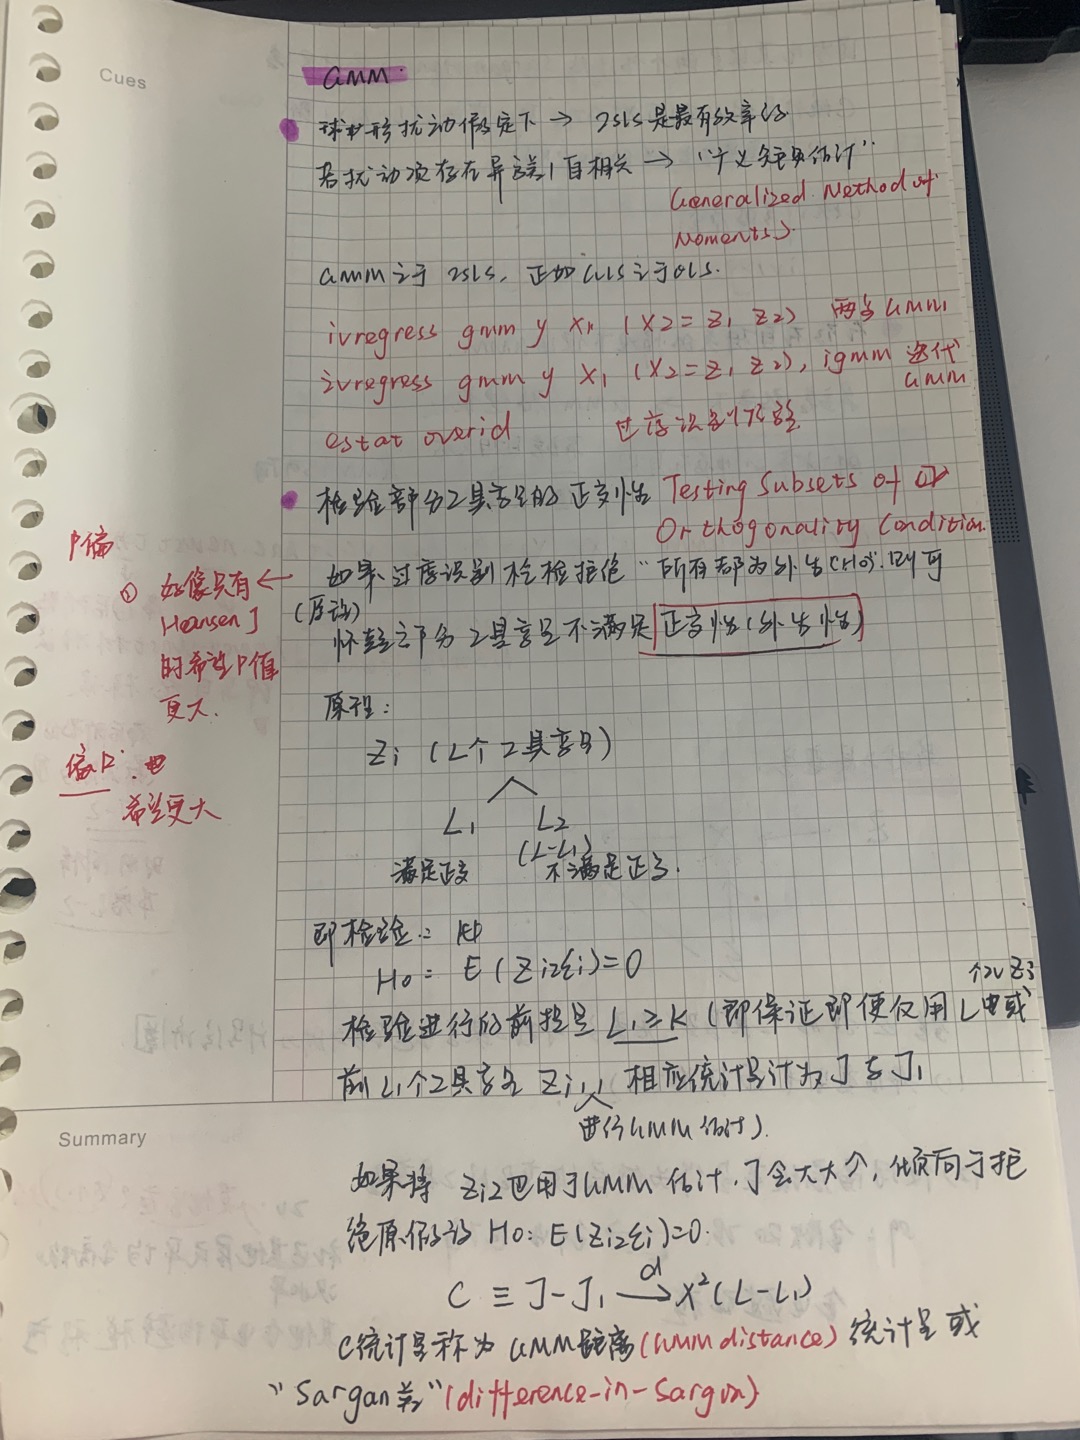 Cues
GMM.
球型扰动假定下 → 2SLS是最有效率的
若扰动项存在异方差，自相关 → “广义矩估计”
Generalized Method of
Moments).
GMM之于 2SLS, 正如GLS之于OLS.
ivregress gmm y x1 (x2 = z1 z2) 两步GMM
ivregress gmm y x1 (x2 = z1 z2), igmm 迭代
GMM
estat overid 过度识别检验
检验部分工具变量的正交性 Testing Subsets of
Orthogonality Condition.
P偏
① 好像只有 ←
Hansen J
的希望P值
更大.
偏R². 也
希望更大
如果过度识别检检拒绝“所有都为外生(H0)”.则可
(原话)
怀疑部分工具变量不满足 正交性(外生性)
原理:
Zi (L个工具变量)
L1 L2
(L-L1)
满足正交 不满足正交.
即检验:
H0: E(Zi2εi)=0
个IV Zi
检验进行的前提是 L1≥K (即保证即便仅用 L 或
前L1个工具变量 Zi1, 相应统计量计为J与J1
进行GMM估计).
Summary
如果将 Zi2也用于GMM估计, J会大大个, 倾向于拒
绝原假设 H0: E(Zi2εi)=0.
C ≡ J-J1 →d χ²(L-L1)
C统计量称为 GMM距离(GMM distance) 统计量或
“Sargan差”(difference-in-Sargan)